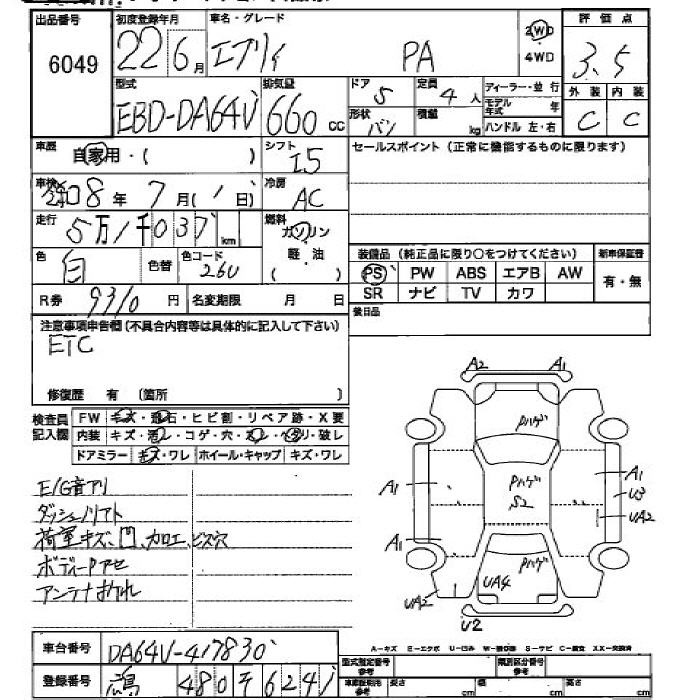 出品番号 初度登録年月 車名・グレード 2WD 4WD 評価点
6049 22 6月 エブリィ PA 3.5
型式 排気量 ドア 定員 ディーラー・並行 外装 内装
EBD-DA64V 660cc 5 4人 モデル年式 年 C C
形状 バン 積載 kg ハンドル 左・右
車歴 自家用・( ) シフト I5 セールスポイント(正常に機能するものに限ります)
車検 8年7月(1日) 冷房 AC
走行 5万1千037km 燃料 ガソリン 軽・油 ( )
色 白 色替 色コード 26U
装備品(純正品に限り○をつけてください) 新車保証書
PS PW ABS エアB AW 有・無
SR ナビ TV カワ
R券 9310円 名変期限 月 日
後日品
注意事項申告欄(不具合内容等は具体的に記入して下さい)
ETC
修復歴 有 (箇所 )
検査員記入欄 FW キズ・飛石・ヒビ割・リペア跡・X要
内装 キズ・汚レ・コゲ・穴・ヌレ・ヘタリ・破レ
ドアミラー キズ・ワレ ホイール・キャップ キズ・ワレ
E/G音アリ
ダッシュノリアト
荷室キズ、凹、カロエ、ビス穴
ボディーPアセ
アンテナオレ
A2 A1
Pハゲ
A1 Pハゲ S2 A1 U3 UA2
A1 Pハゲ
UA4 UA2
U2
A-キズ E-エクボ U-凹み W-補修跡 S-サビ C-腐食 XX-交換済
車台番号 DA64V-417830
登録番号 480 6241
型式指定番号 参考 類別区分番号 参考
車庫証明用 参考 長さ cm 幅 cm 高さ cm